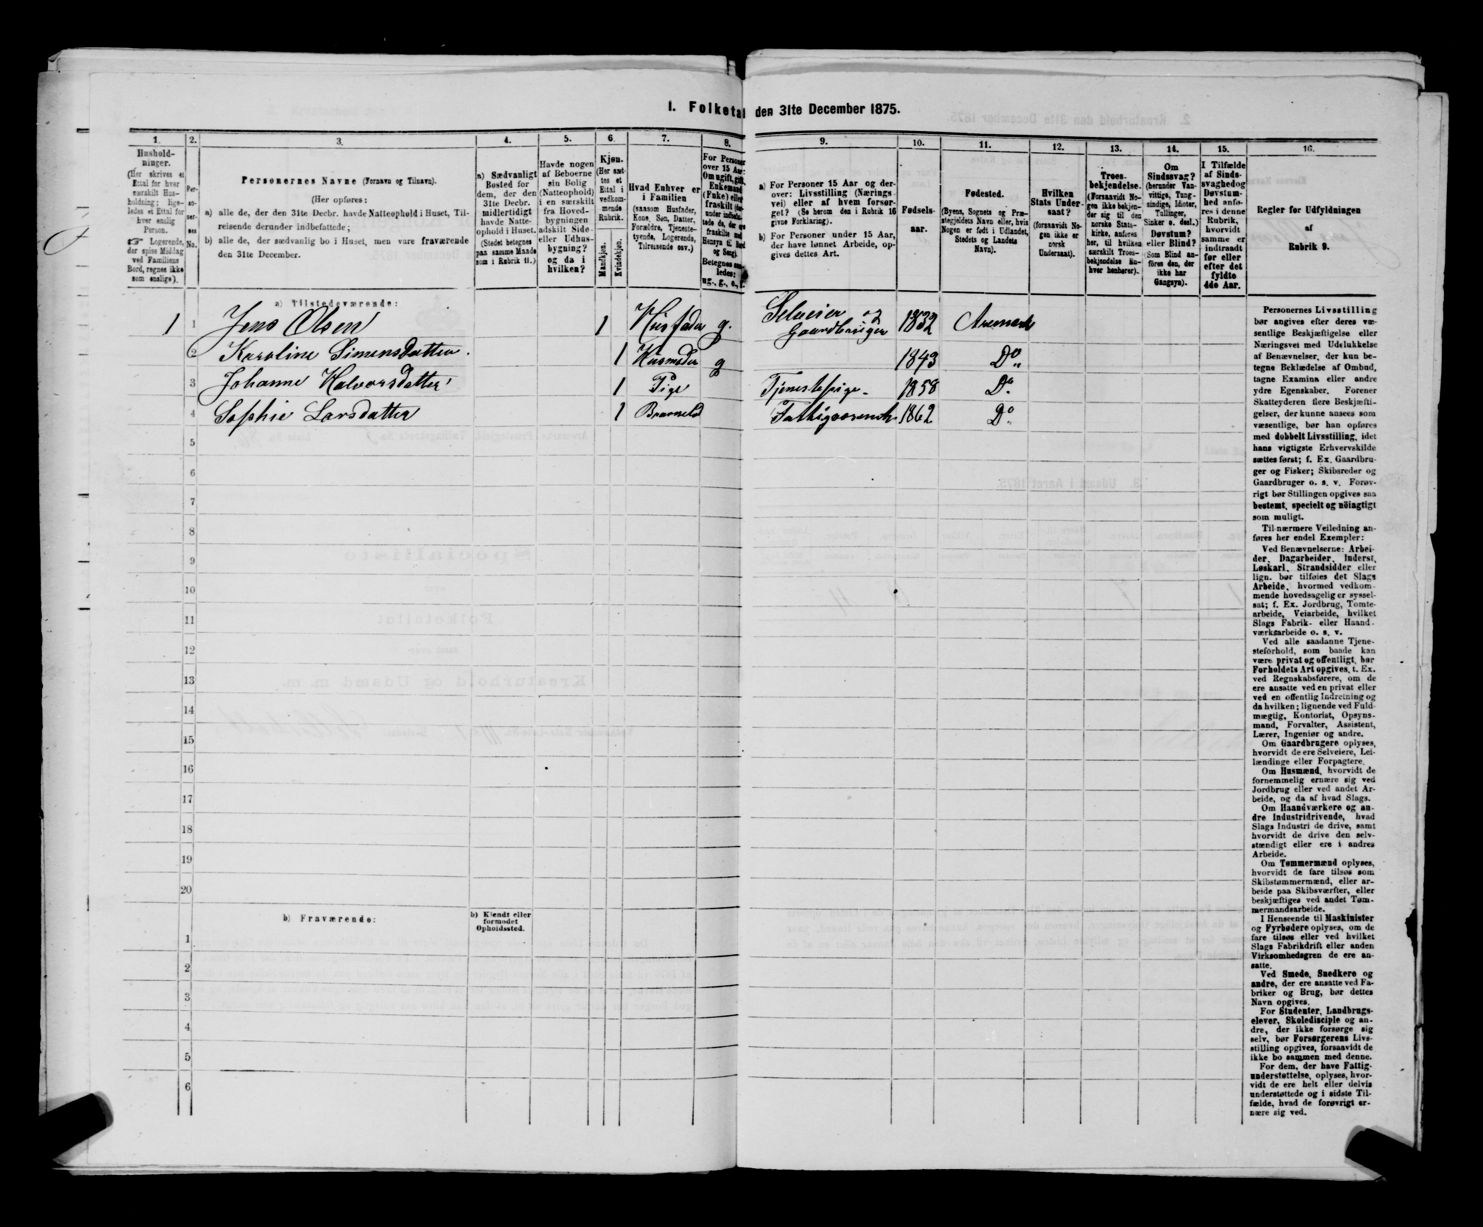 I. Folketal den 31te December 1875.
1. 2. 3. 4. 5. 6. 7. 8. 9. 10. 11. 12. 13. 14. 15. 16.
Hushold-
ninger.
(Her skrives et
Ettal for hver
særskilt Hus-
holdning; lige-
ledes et Ettal for
hver enslig
Person.
Logerende,
der spise Middag
ved Familiens
Bord, regnes ikke
som enslige).
Per-
so-
ner-
nes
No.
Personernes Navne (Fornavn og Tilnavn).
(Her opføres:
a) alle de, der den 31te Decbr. havde Natteophold i Huset, Til-
reisende derunder indbefattede;
b) alle de, der sædvanlig bo i Huset, men vare fraværende
den 31te December.
a) Sædvanligt
Bosted for
dem, der den
31te Decbr.
midlertidigt
havde Natte-
ophold i Huset.
(Stedet betegnes
paa samme Maade
som i Rubrik 11.)
Havde nogen
af Beboerne
sin Bolig
(Natteophold)
i en særskilt
fra Hoved-
bygningen
adskilt Side-
eller Udhus-
bygning?
og da i
hvilken?
Kjøn.
(Her sæt-
tes et
Ettal i
vedkom-
mende
Rubrik.
Mandkjøn.
Kvindekjøn.
Hvad Enhver er
i Familien
(saasom Husfader,
Kone, Søn, Datter,
Forældre, Tjeneste-
tyende, Logerende,
Tilreisende osv.)
For Personer
over 15 Aar:
Om ugift, gift,
Enkemand
(Enke) eller
fraskilt
a) For Personer 15 Aar og der-
over: Livsstilling (Nærings-
vei) eller af hvem forsør-
get? (Se herom den i Rubrik 16
givne Forklaring).
b) For Personer under 15 Aar,
der have lønnet Arbeide, op-
gives dettes Art.
Fødsels-
aar.
Fødested.
(Byens, Sognets og Præ-
stegjeldets Navn eller, hvis
Nogen er født i Udlandet,
Stedets og Landets
Navn).
Hvilken
Stats Under-
saat?
(forsaavidt No-
gen ikke er
norsk
Undersaat).
Troes-
bekjendelse.
(Forsaavidt No-
gen ikke bekjen-
der sig til den
norske Stats-
kirke, anføres
her, til hvilken
særskilt Troes-
bekjendelse En-
hver henhører).
Om
Sindssvag?
(herunder Van-
vittige, Tung-
sindige, Idioter,
Tullinger,
Sinker o. desl.)
Døvstum?
eller Blind?
(Som Blind an-
føres den, der
ikke har
Gangsyn).
I Tilfælde
af Sinds-
svaghed og
Døvstum-
hed anfø-
res i denne
Rubrik,
hvorvidt
samme er
indtraadt
før eller
efter det
fyldte
4de Aar.
Regler for Udfyldningen
af
Rubrik 9.
a) Tilstedeværende:
1 1 Jens Olsen 1 Husfader g. Selveier og Gaardbruger 1832 Aremark
2 Karoline Simensdatter. 1 Husmoder g 1843 Do
3 Johanne Halvorsdatter 1 Pige Tjenestepige 1858 Do.
4 Sophie Larsdatter 1 1862 Do.
5
6
7
8
9
10
11
12
13
14
15
16
17
18
19
20
b) Fraværende:
b) Kjendt eller
formodet
Opholdssted.
1
2
3
4
5
6
Personernes Livsstilling
bør angives efter deres væ-
sentlige Beskjæftigelse eller
Næringsvei med Udelukkelse
af Benævnelser, der kun be-
tegne Beklædelse af Ombud,
tagne Examina eller andre
ydre Egenskaber. Forener
Skatteyderen flere Beskjæfti-
gelser, der kunne ansees som
væsentlige, bør han opføres
med dobbelt Livsstilling, idet
hans vigtigste Erhvervskilde
sættes først; f. Ex. Gaardbru-
ger og Fisker; Skibsreder og
Gaardbruger o. s. v. Forøv-
rigt bør Stillingen opgives saa
bestemt, specielt og nöiagtigt
som muligt.
Til nærmere Veiledning an-
føres her endel Exempler:
Ved Benævnelserne: Arbei-
der, Dagarbeider, Inderst,
Løskarl, Strandsidder eller
lign. bør tilføies det Slags
Arbeide, hvormed vedkom-
mende hovedsagelig er syssel-
sat; f. Ex. Jordbrug, Tomte-
arbeide, Veiarbeide, hvilket
Slags Fabrik- eller Haand-
værksarbeide o. s. v.
Ved alle saadanne Tjene-
steforhold, som baade kan
være privat og offentligt, bør
Forholdets Art opgives, t. Ex.
ved Regnskabsførere, om de
ere ansatte ved en privat eller
ved en offentlig Indretning og
da hvilken; lignende ved Fuld-
mægtig, Kontorist, Opsyns-
mand, Forvalter, Assistent,
Lærer, Ingeniør og andre.
Om Gaardbrugere oplyses,
hvorvidt de ere Selveiere, Lei-
lændinge eller Forpagtere.
Om Husmænd, hvorvidt de
fornemmelig ernære sig ved
Jordbrug eller ved andet Ar-
beide, og da af hvad Slags.
Om Haandværkere og an-
dre Industridrivende, hvad
Slags Industri de drive, samt
hvorvidt de drive den selv-
stændigt eller ere i andres
Arbeide.
Om Tømmermænd oplyses,
hvorvidt de fare tilsøs som
Skibstømmermænd, eller ar-
beide paa Skibsværfter, eller
beskjæftiges ved andet Tøm-
mermandsarbeide.
I Henseende til Maskinister
og Fyrbødere oplyses, om de
fare tilsøs eller ved hvilket
Slags Fabrikdrift eller anden
Virksomhedsgren de ere an-
satte.
Ved Smede, Snedkere og
andre, der ere ansatte ved Fa-
briker og Brug, bør dettes
Navn opgives.
For Studenter, Landbrugs-
elever, Skoledisciple og an-
dre, der ikke forsørge sig
selv, bør Forsørgerens Livs-
stilling opgives, forsaavidt de
ikke bo sammen med denne.
For dem, der have Fattig-
understøttelse, oplyses, hvor-
vidt de ere helt eller delvis
understøttede og i sidste Til-
fælde, hvad de forøvrigt er-
nære sig ved.